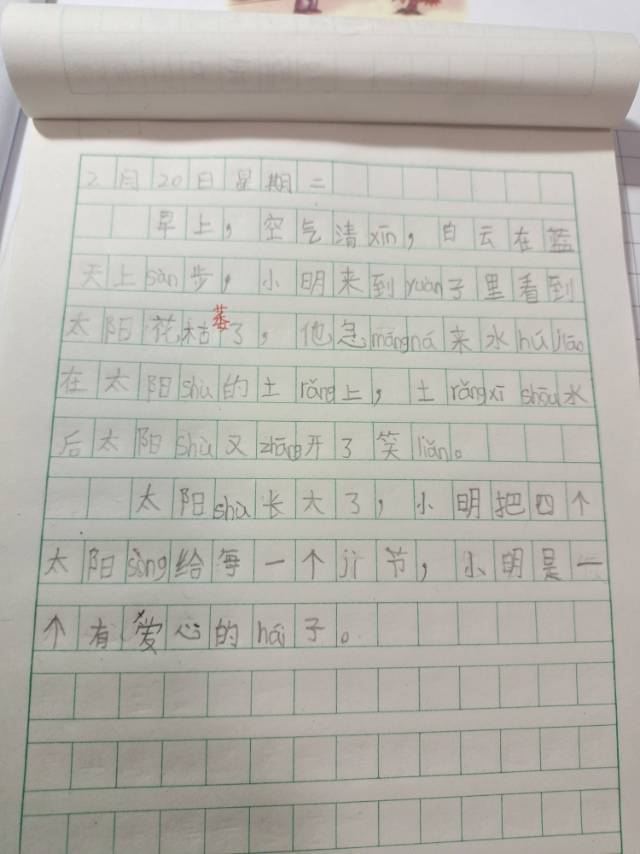 2月20日星期二
早上，空气清xīn，白云在蓝
天上sàn步，小明来到yuàn子里看到
太阳花枯萎了，他急mángná来水húJiāo
在太阳shù的土rǎng上，土rǎngxī shōu水
后太阳shù又zhāng开了笑liǎn。
太阳shù长大了，小明把四个
太阳sòng给每一个jì节，小明是一
个有爱心的hái子。